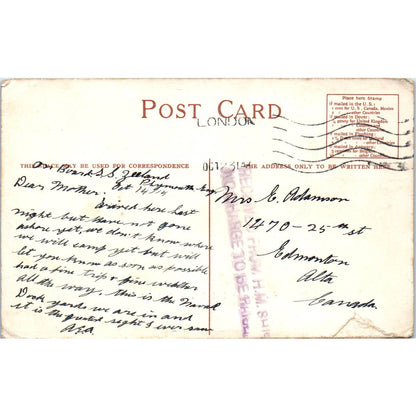 Place here Stamp
POST CARD
LONDON
THIS SPACE MAY BE USED FOR CORRESPONDENCE
THE ADDRESS ONLY TO BE WRITTEN HERE
On Board S.S. Zeeland
Plymouth Eng
Oct 14/14
Dear Mother.
Arrived here last
night but have not gone
ashore yet, we don't know where
we will camp yet but will
let you know as soon as possible
had a fine trip & fine weather
all the way, this is the Naval
Dock yards we are in and
it is the greatest sight I ever saw
Mrs E. Adamson
1470-25th st
Edmonton
Alta
Canada
H.M. SHIP
CHARGE TO BE RAISED